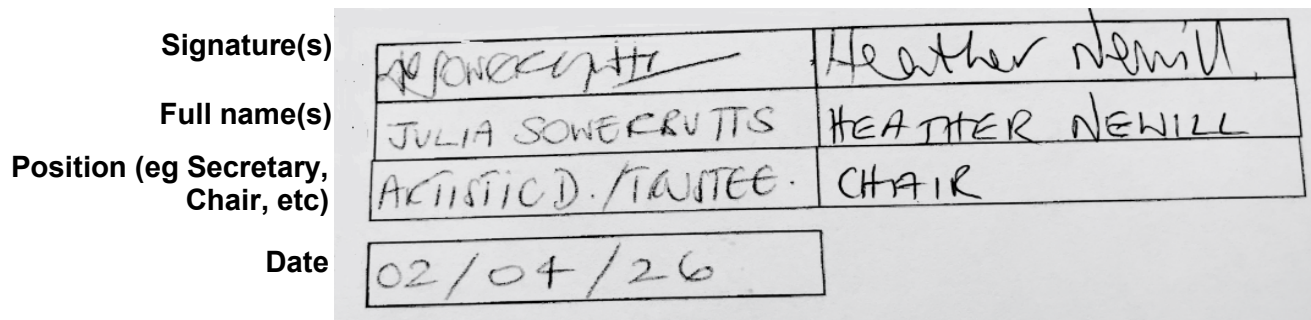 Signature(s) Heather Newill
Full name(s) JULIA SOWERBUTTS HEATHER NEWILL
Position (eg Secretary, Chair, etc) ARTISTIC D./TRUSTEE. CHAIR
Date 02/04/26